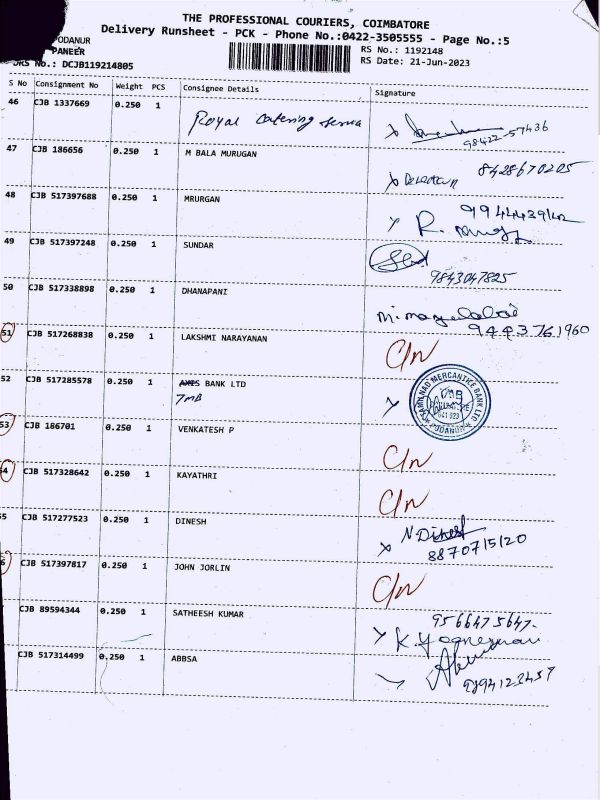 THE PROFESSIONAL COURIERS, COIMBATORE
Delivery Runsheet - PCK - Phone No.:0422-3505555 - Page No.:5
PODANUR
PANEER
RS No.: 1192148
DRS No.: DCJB119214805
RS Date: 21-Jun-2023
S No Consignment No Weight PCS Consignee Details Signature
46 CJB 1337669 0.250 1 Royal Catering
98422-57436
47 CJB 186656 0.250 1 M BALA MURUGAN 8428670205
48 CJB 517397688 0.250 1 MRURGAN
R.
49 CJB 517397248 0.250 1 SUNDAR
9843047825
50 CJB 517338898 0.250 1 DHANAPANI
9443761960
51 CJB 517268838 0.250 1 LAKSHMI NARAYANAN C/N
52 CJB 517285578 0.250 1 AXIS BANK LTD
TMB
TAMILNAD MERCANTILE BANK LTD
PODANUR
53 CJB 186701 0.250 1 VENKATESH P C/N
54 CJB 517328642 0.250 1 KAYATHRI C/N
55 CJB 517277523 0.250 1 DINESH N Dinesh
8870715120
56 CJB 517397817 0.250 1 JOHN JORLIN C/N
CJB 89594344 0.250 1 SATHEESH KUMAR 9566475647
CJB 517314499 0.250 1 ABBSA